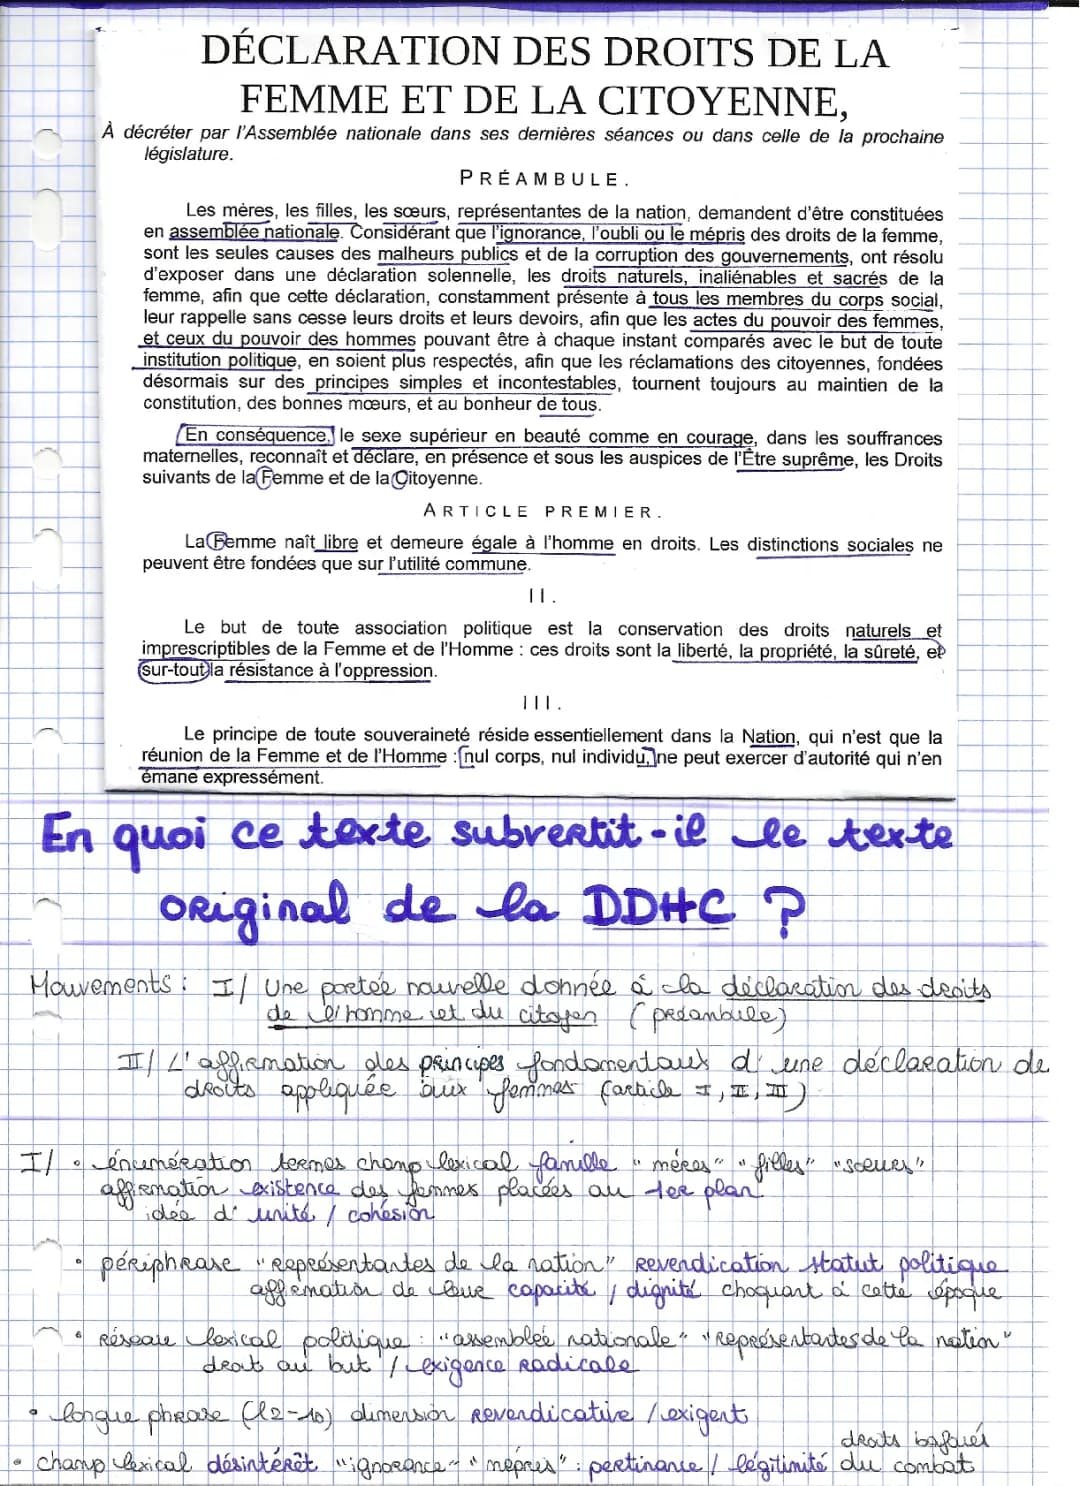 DÉCLARATION DES DROITS DE LA
FEMME ET DE LA CITOYENNE,
À décréter par l'Assemblée nationale dans ses dernières séances ou dans celle de la prochaine
législature.
PRÉAMBULE.
Les mères, les filles, les sœurs, représentantes de la nation, demandent d'être constituées
en assemblée nationale. Considérant que l'ignorance, l'oubli ou le mépris des droits de la femme,
sont les seules causes des malheurs publics et de la corruption des gouvernements, ont résolu
d'exposer dans une déclaration solennelle, les droits naturels, inaliénables et sacrés de la
femme, afin que cette déclaration, constamment présente à tous les membres du corps social,
leur rappelle sans cesse leurs droits et leurs devoirs, afin que les actes du pouvoir des femmes,
et ceux du pouvoir des hommes pouvant être à chaque instant comparés avec le but de toute
institution politique, en soient plus respectés, afin que les réclamations des citoyennes, fondées
désormais sur des principes simples et incontestables, tournent toujours au maintien de la
constitution, des bonnes mœurs, et au bonheur de tous.
En conséquence, le sexe supérieur en beauté comme en courage, dans les souffrances
maternelles, reconnaît et déclare, en présence et sous les auspices de l'Être suprême, les Droits
suivants de la Femme et de la Citoyenne.
ARTICLE PREMIER.
La Femme naît libre et demeure égale à l'homme en droits. Les distinctions sociales ne
peuvent être fondées que sur l'utilité commune.
II.
Le but de toute association politique est la conservation des droits naturels et
imprescriptibles de la Femme et de l'Homme : ces droits sont la liberté, la propriété, la sûreté, et
sur-tout la résistance à l'oppression.
III.
Le principe de toute souveraineté réside essentiellement dans la Nation, qui n'est que la
réunion de la Femme et de l'Homme : nul corps, nul individu, ne peut exercer d'autorité qui n'en
émane expressément.
En quoi ce texte subvertit-il le texte
original de la DDHC ?
Mouvements : I/ Une portée nouvelle donnée à la déclaration des droits
de l'homme et du citoyen (préambule)
II/ L'affirmation des principes fondamentaux d'une déclaration de
droits appliquée aux femmes (article I, II, III)
I/ • énumération termes champ lexical famille "mères" "filles" "sœurs"
affirmation existence des femmes placées au 1er plan
idée d'unité / cohésion
• périphrase "représentantes de la nation" revendication statut politique
affirmation de leur capacité / dignité choquant à cette époque
• Réseau lexical politique : "assemblée nationale" "représentantes de la nation"
droit au but / exigence radicale
• longue phrase (l2-10) dimension revendicative / exigent
droits bafoués
• champ lexical désintérêt "ignorance" "mépris" : pertinance / légitimité du combat